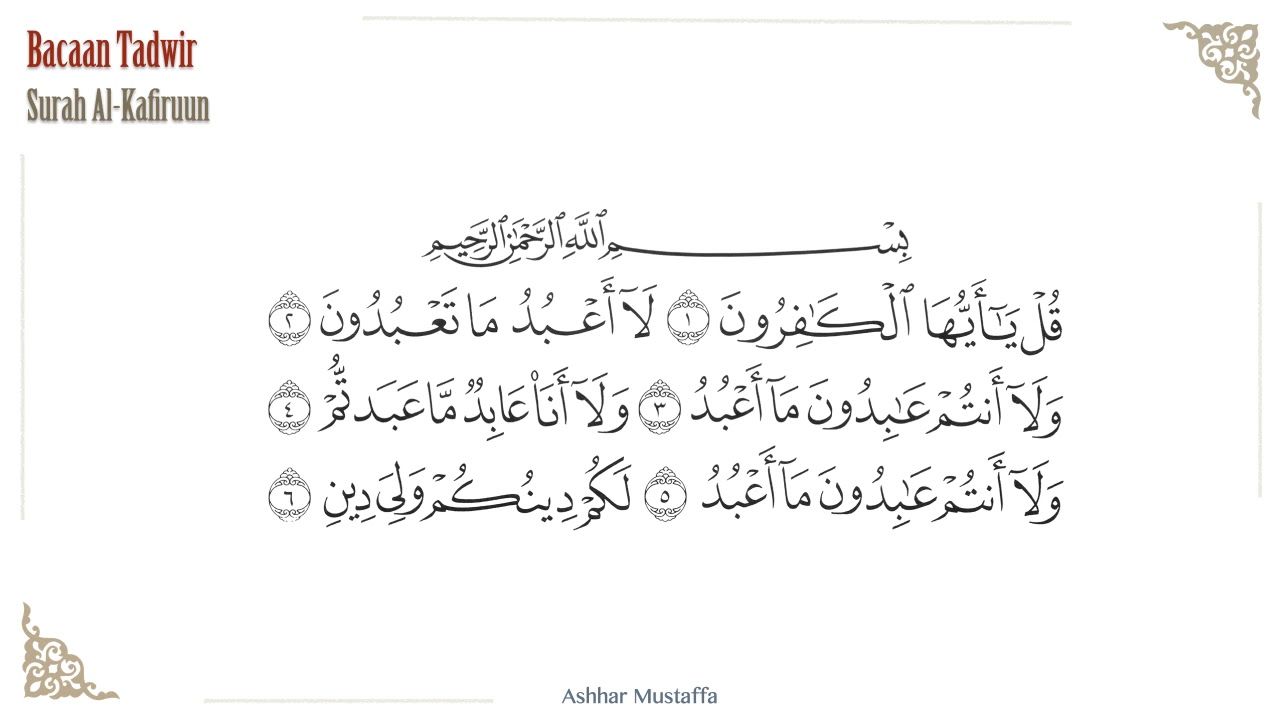 Bacaan Tadwir
Surah Al-Kafiruun
بِسْمِ ٱللَّهِ ٱلرَّحْمَٰنِ ٱلرَّحِيمِ
قُلْ يَٰٓأَيُّهَا ٱلْكَٰفِرُونَ ١ لَآ أَعْبُدُ مَا تَعْبُدُونَ ٢
وَلَآ أَنتُمْ عَٰبِدُونَ مَآ أَعْبُدُ ٣ وَلَآ أَنَا۠ عَابِدٌ مَّا عَبَدتُّمْ ٤
وَلَآ أَنتُمْ عَٰبِدُونَ مَآ أَعْبُدُ ٥ لَكُمْ دِينُكُمْ وَلِىَ دِينِ ٦
Ashhar Mustaffa